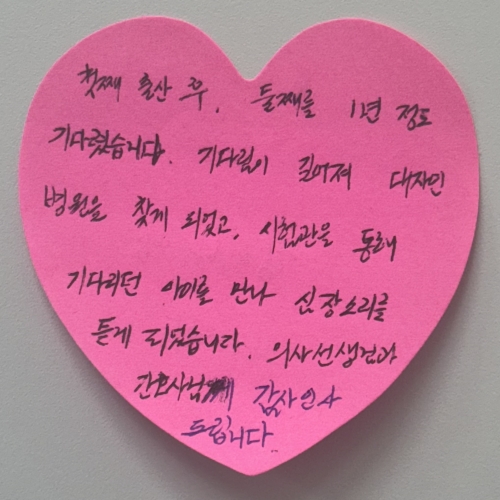 첫째 출산 후, 둘째를 1년 정도
기다렸습니다. 기다림이 길어져 대자인
병원을 찾게 되었고, 시험관을 통해
기다리던 아이를 만나 심장소리를
듣게 되었습니다. 의사선생님과
간호사님께 감사인사
드립니다.